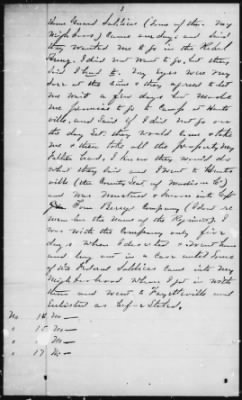 3
Home Guard Soldiers (some of them. My
Neighbors) came one day and said
they wanted me to go in the Rebel
Army. I did not want to go, but they
said I had to. My eyes were very
sore at the time & they agreed to let
me wait a few days but made
me promise to go to Camp at Hunts
ville, and said if I did not go on
the day set they would come & take
me & then take all the property my
Father had. I knew they would do
what they said and I went to Hunts
ville (the County seat of Madison Co)
and was mustered & sworn into Capt
Tom Berry's Company (I don't re
member the name of the Regiment). I
was with the Company only five
days when I deserted & went home
and lay out in a Cave until some
of the Federal Soldiers came into my
Neighborhood when I got in with
them and went to Fayetteville and
enlisted as before stated.
No 14 No —
" 15 No —
" No —
" 17 No —